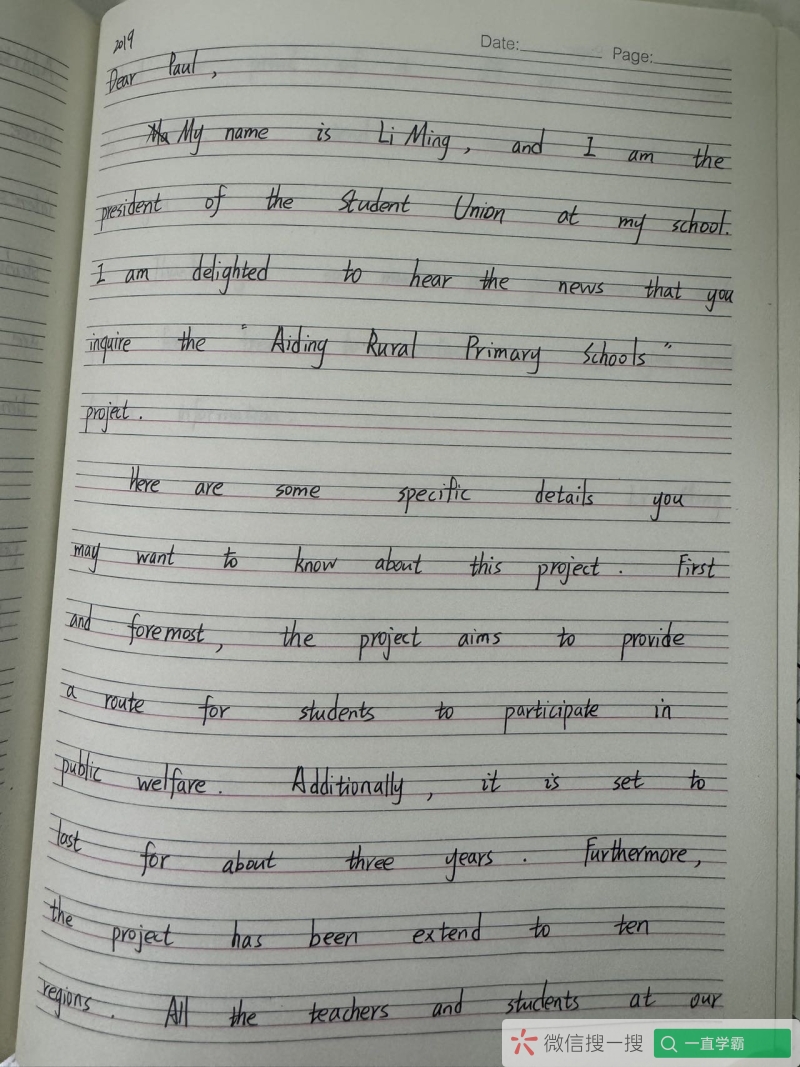 2019
Date: Page:
Dear Paul,
My name is Li Ming, and I am the
president of the Student Union at my school.
I am delighted to hear the news that you
inquire the "Aiding Rural Primary Schools"
project.
Here are some specific details you
may want to know about this project. First
and foremost, the project aims to provide
a route for students to participate in
public welfare. Additionally, it is set to
last for about three years. Furthermore,
the project has been extend to ten
regions. All the teachers and students at our
微信搜一搜 一直学霸